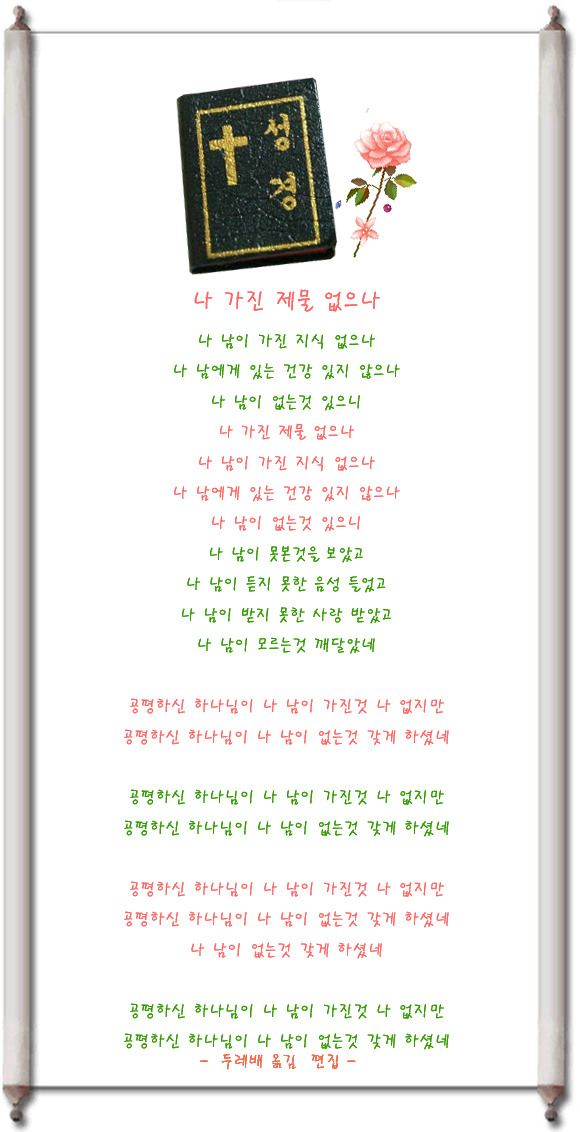 성경
나 가진 제물 없으나
나 남이 가진 지식 없으나
나 남에게 있는 건강 있지 않으나
나 남이 없는것 있으니
나 가진 제물 없으나
나 남이 가진 지식 없으나
나 남에게 있는 건강 있지 않으나
나 남이 없는것 있으니
나 남이 못본것을 보았고
나 남이 듣지 못한 음성 들었고
나 남이 받지 못한 사랑 받았고
나 남이 모르는것 깨달았네
공평하신 하나님이 나 남이 가진것 나 없지만
공평하신 하나님이 나 남이 없는것 갖게 하셨네
공평하신 하나님이 나 남이 가진것 나 없지만
공평하신 하나님이 나 남이 없는것 갖게 하셨네
공평하신 하나님이 나 남이 가진것 나 없지만
공평하신 하나님이 나 남이 없는것 갖게 하셨네
나 남이 없는것 갖게 하셨네
공평하신 하나님이 나 남이 가진것 나 없지만
공평하신 하나님이 나 남이 없는것 갖게 하셨네
- 두레배 옮김 편집 -